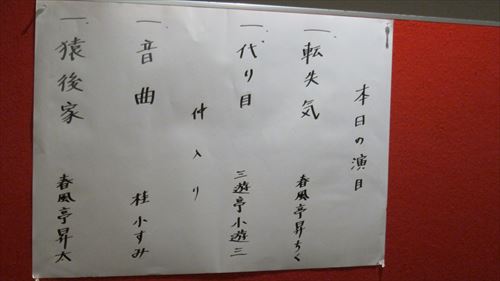 本日の演目
一、転失気 春風亭昇ちく
一、代り目 三遊亭小遊三
仲入り
一、音曲 桂小すみ
一、猿後家 春風亭昇太